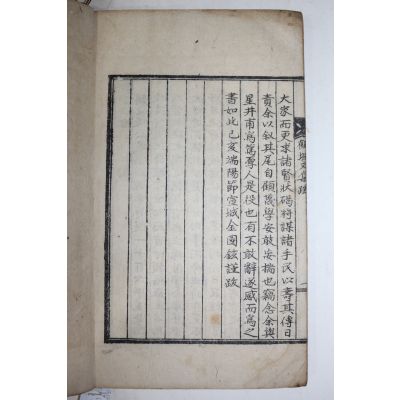 大家而更求諸賢狀碣將謀諸手民以壽其傳日
責余以叙其尾自顧蔑學安敢妄揣也竊念余與
星井甫爲篤尊人是役也有不敢辭遂感而爲之
書如此己亥端陽節宣城金圖鉉謹跋